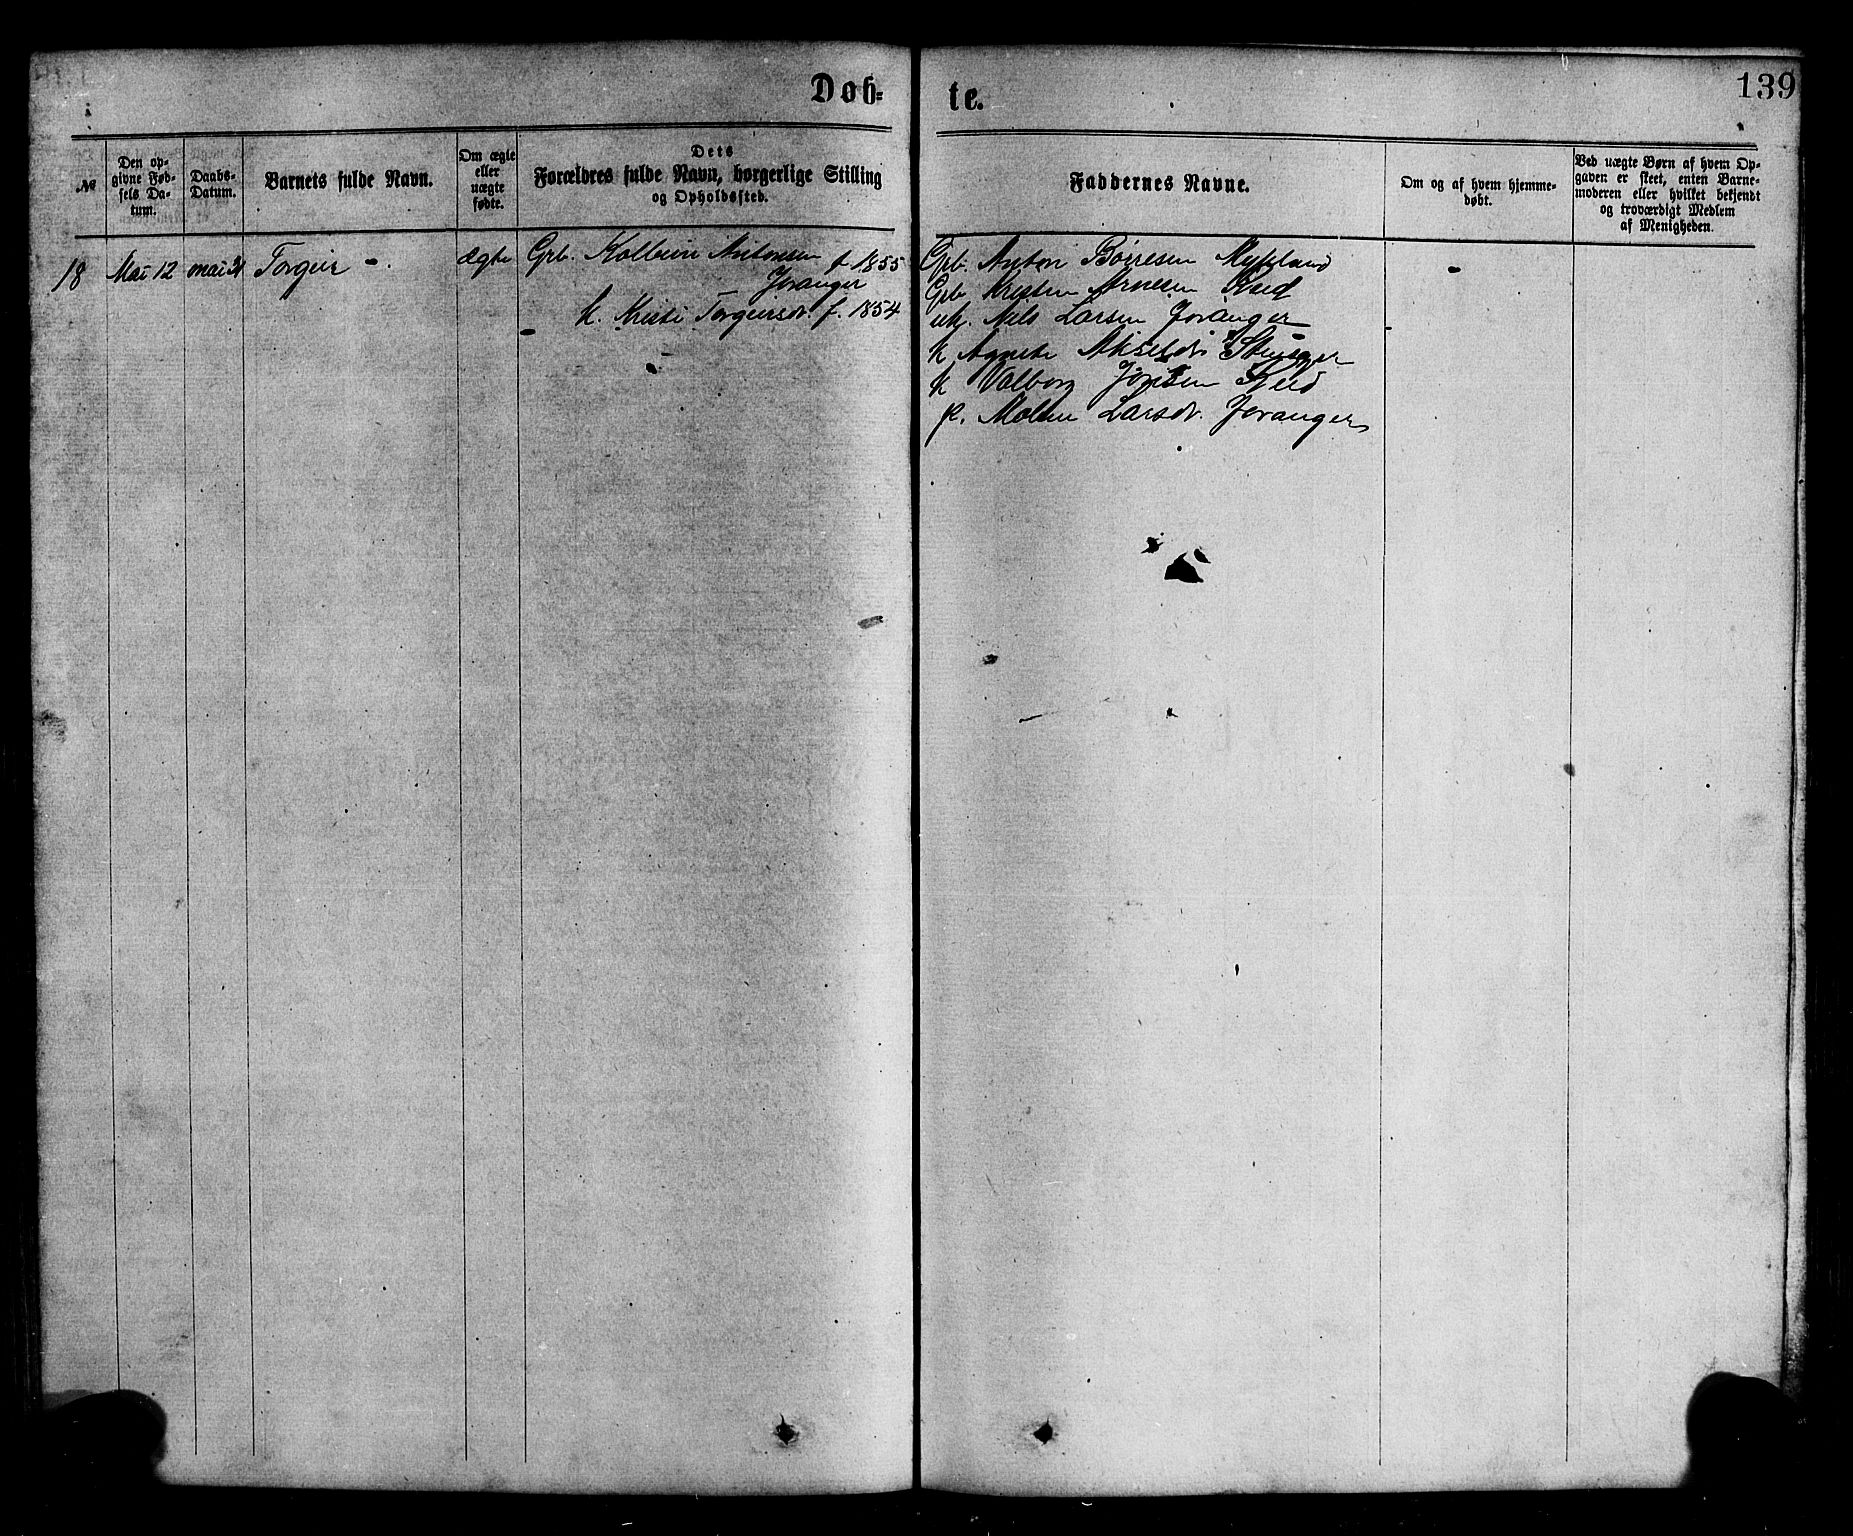 Døb=
te.
139
№
Den op-
givne Fød-
sels Da-
tum.
Daabs-
Datum.
Barnets fulde Navn.
Om ægte
eller
uægte
fødte.
Dets
Forældres fulde Navn, borgerlige Stilling
og Opholdssted.
Faddernes Navne.
Om og af hvem hjemme-
døbt.
Ved uægte Børn af hvem Op-
gaven er skeet, enten Barne-
moderen eller hvilket bekjendt
og troværdigt Medlem
af Menigheden.
18
Mai 12
mai 31
Torgeir -.
ægte
Grb. Kolbein Antonsen f. 1855
Joranger
k. Kristi Torgeirsdr. f. 1854
-
Grb. Anton Børresen Mykland
Grb. Kristen Arnesen Kvid
uk. Nils Larsen Joranger
k Agnete Akseldr.
k Valborg Jonsen
p. Malene Larsdr. Joranger
-
-